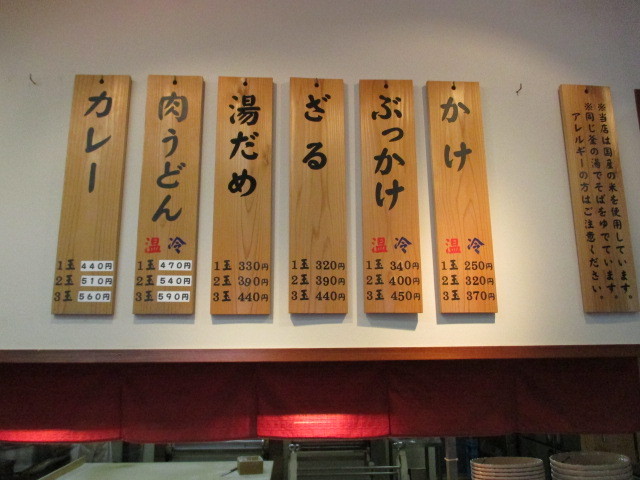 ※当店は国産の米を使用しています。
※同じ釜の湯でそばをゆでています。
アレルギーの方はご注意ください
かけ
温 冷
1玉 250円
2玉 320円
3玉 370円
ぶっかけ
温 冷
1玉 340円
2玉 400円
3玉 450円
ざる
1玉 320円
2玉 390円
3玉 440円
湯だめ
1玉 330円
2玉 390円
3玉 440円
肉うどん
温 冷
1玉 470円
2玉 540円
3玉 590円
カレー
1玉 440円
2玉 510円
3玉 560円